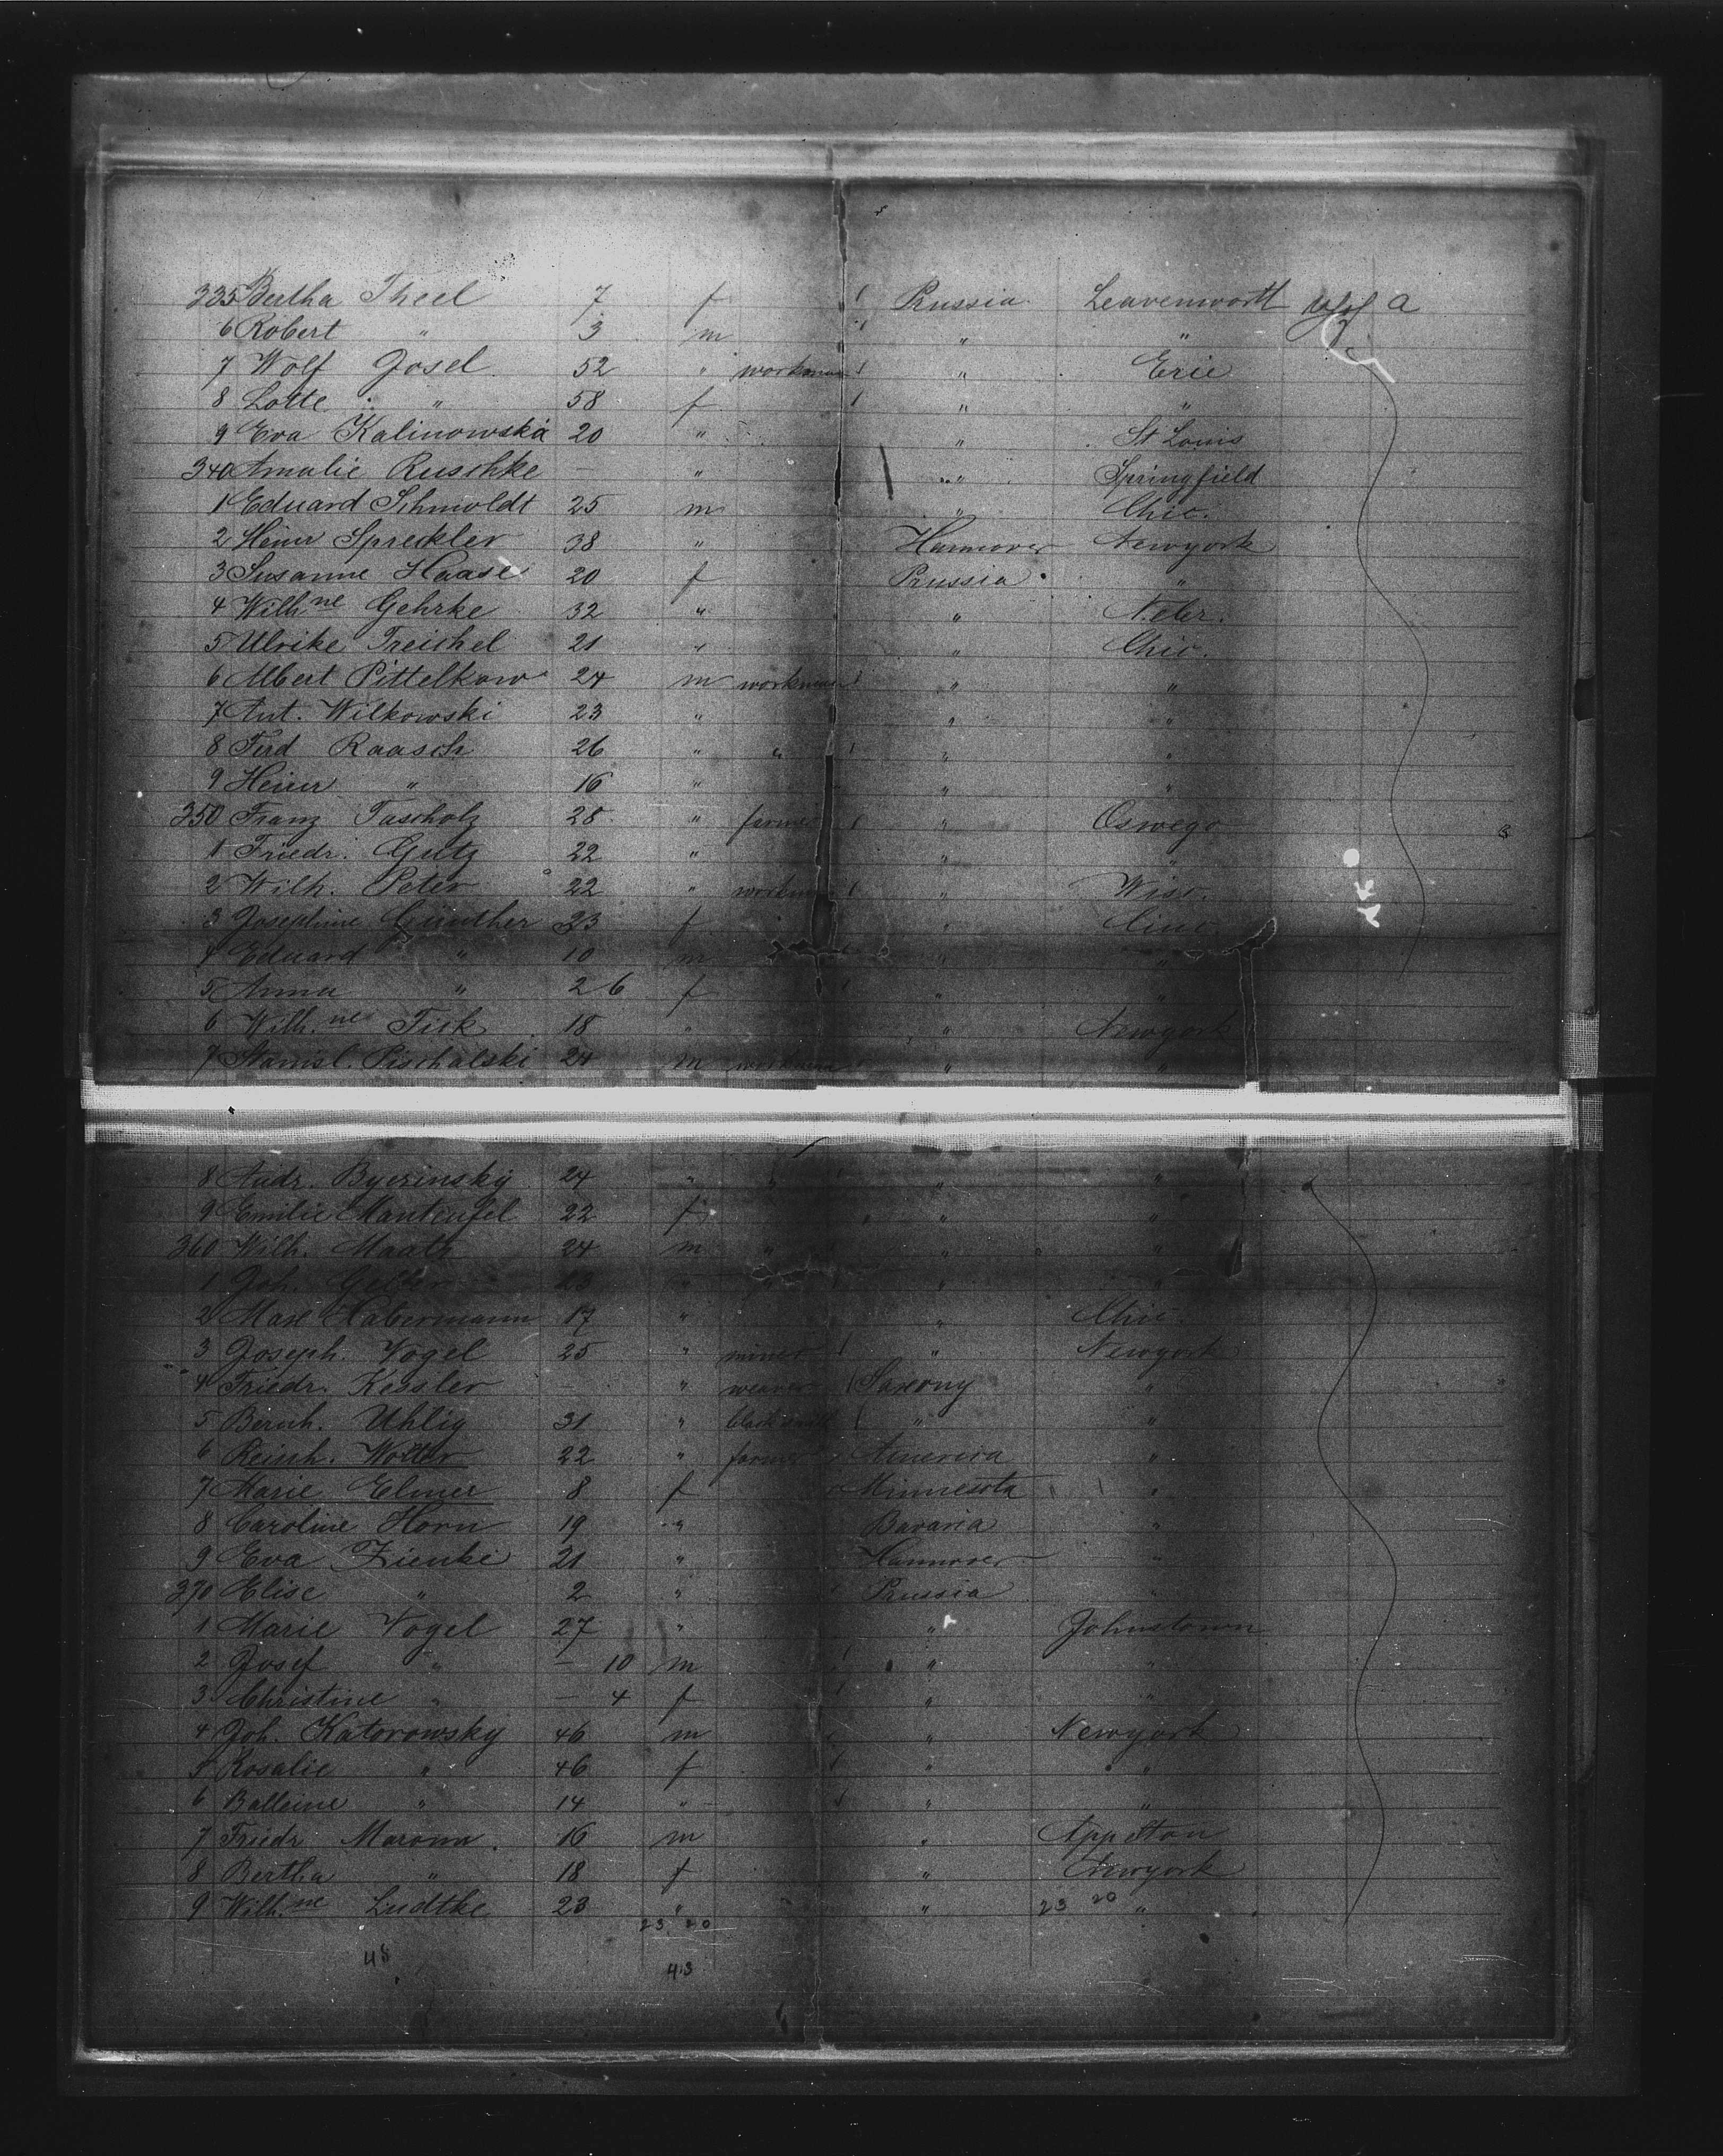 335 Bertha Theel 7 f 1 Prussia Leavenworth a
6 Robert " 3 m 1 " "
7 Wolf Josel 52 " workman 1 " Erie
8 Lotte " 58 f 1 " "
9 Eva Kalinowska 20 " " St Louis
340 Amalie Ruschke — " " Springfield
1 Eduard Schmoldt 25 m " Chic.
2 Heinr Spreckler 38 " Hannover Newyork
3 Susanne Haase 20 f Prussia "
4 Wilhne Gehrke 32 " " Nebr.
5 Ulrike Treichel 21 " " Chic.
6 Albert Pittelkow 24 m workman 1 " "
7 Ant. Wilkowski 23 " " "
8 Ferd Raasch 26 " " 1 " "
9 Heinr " 16 " " "
350 Franz Tascholz 28 " farmer 1 " Oswego
1 Friedr. Gutz 22 " " "
2 Wilh. Peter 22 " workman 1 " Wisc.
3 Josephine Günther 23 f " Cinc.
4 Eduard " 10 m " "
5 Anna " 2 6 f " "
6 Wilh.ne Fick 18 " " Newyork
7 Stanisl. Pischalski 24 m workman " "
8 Andr. Byerinsky 24 " " " "
9 Emilie Manteufel 22 f " "
360 Wilh. Maath 24 m " " "
1 Joh. 23 " " "
2 Max Habermann 17 " " Chic.
3 Joseph. Vogel 25 " miner 1 " Newyork
4 Friedr. Kessler — " weaver 1 Saxony "
5 Bernh. Uhlig 31 " blacksmith 1 " "
6 Reinh. Wolter 22 " farmer America "
7 Marie Elmer 8 f Minnesota "
8 Caroline Horn 19 " Bavaria "
9 Eva Zienke 21 " Hannover "
370 Elise " 2 " Prussia "
1 Marie Vogel 27 " " Johnstown
2 Josef " — 10 m " "
3 Christine " — 4 f " "
4 Joh. Katorowsky 46 m " Newyork
5 Rosalie " 46 f " "
6 Balleine " 14 " " "
7 Friedr Maronn 16 m " Appelton
8 Bertha " 18 f " Newyork
9 Wilh.ne Ludtke 23 " " "
23 20 23 20
48 43